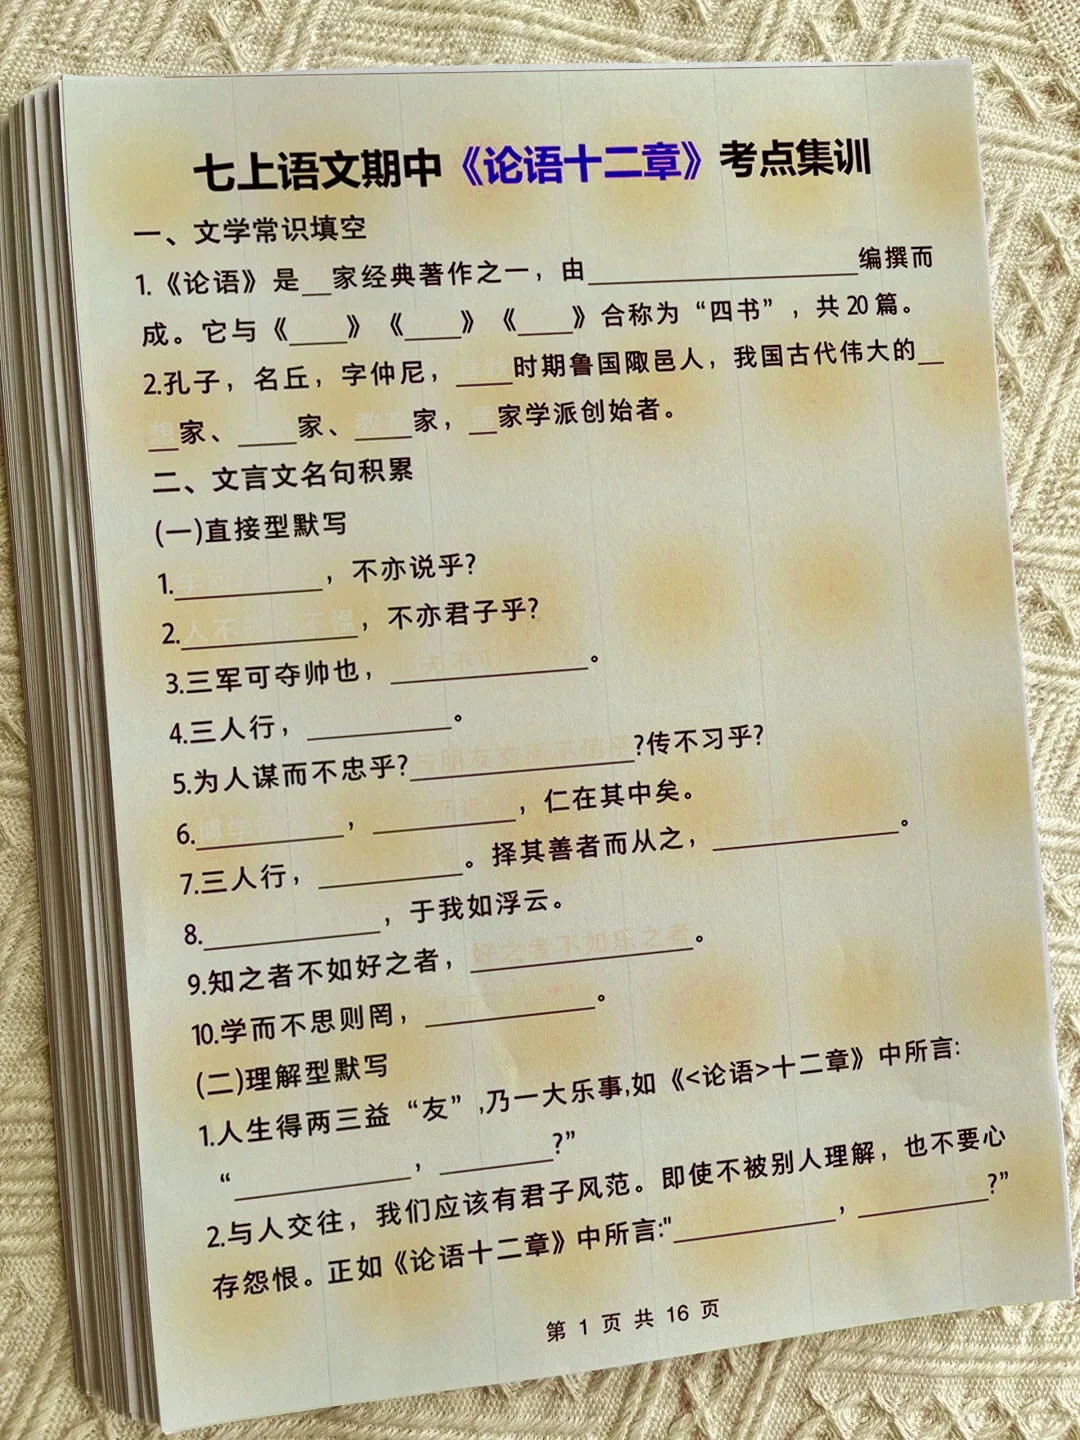 七上语文期中《论语十二章》考点集训
一、文学常识填空
1.《论语》是__家经典著作之一，由____________________编撰而
成。它与《____》《____》《____》合称为“四书”，共20篇。
2.孔子，名丘，字仲尼，____时期鲁国陬邑人，我国古代伟大的__
__家、____家、____家，__家学派创始者。
二、文言文名句积累
(一)直接型默写
1.__________，不亦说乎?
2.____________，不亦君子乎?
3.三军可夺帅也，______________。
4.三人行，__________。
5.为人谋而不忠乎?________________?传不习乎?
6.__________，__________，仁在其中矣。
7.三人行，__________。择其善者而从之，_____________。
8.____________，于我如浮云。
9.知之者不如好之者，________________。
10.学而不思则罔，____________。
(二)理解型默写
1.人生得两三益“友”,乃一大乐事,如《<论语>十二章》中所言:
“____________，________?”
2.与人交往，我们应该有君子风范。即使不被别人理解，也不要心
存怨恨。正如《论语十二章》中所言:"___________，_________?”
第 1 页 共 16 页